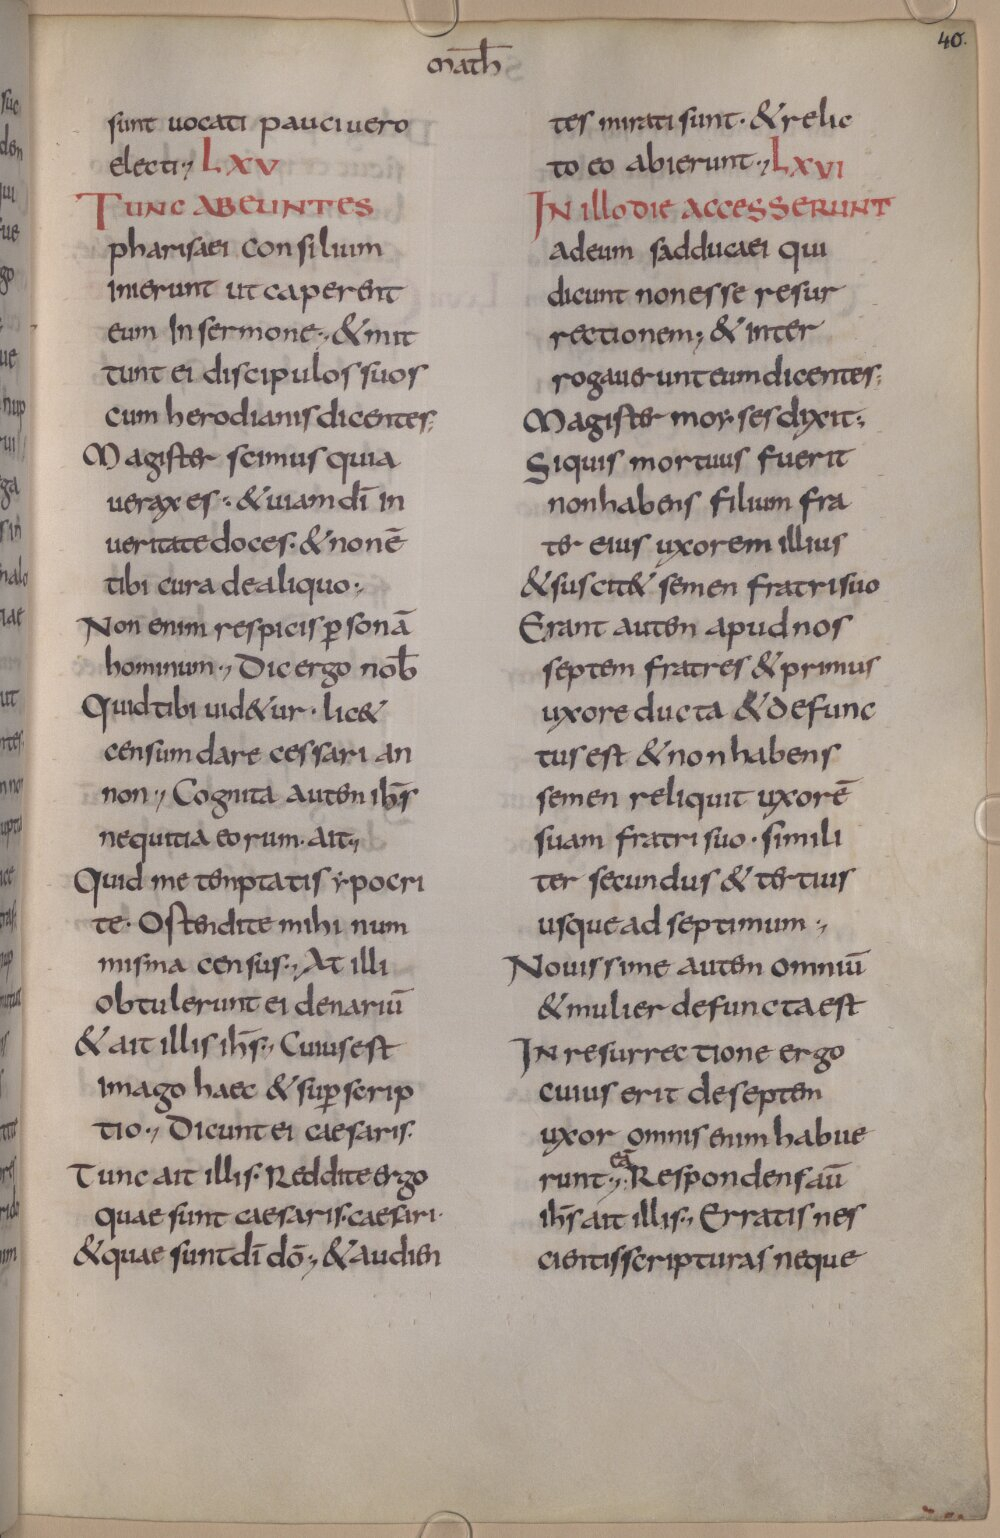 40.
Math̄
sunt uocati pauci uero
electi·, LXV
TUNC ABEUNTES
pharisaei consilium
inierunt ut caperent
eum In sermone·, & mit
tunt ei discipulos suos
cum herodianis dicentes;
Magister scimus quia
uerax es·. & uiam dī in
ueritate doces. & non ē
tibi cura de aliquo·,
Non enim respicis ꝑsonā
hominum·, Dic ergo nob̄
Quid tibi uid&ur · lic&
censum dare cessari an
non·, Cognita autem ih̄s
nequitia eorum. ait·,
Quid me temptatis ẏpocri
te· Ostendite mihi num
misma census·, At illi
obtulerunt ei denariū
& ait illis ih̄s·, Cuius est
imago haec & suꝑscrip
tio·, Dicunt ei caesaris.
Tunc ait illis· Reddite ergo
quae sunt caesaris. caesari·
& quae sunt dī dō·, & audien
tes mirati sunt· & relic
to eo abierunt·, LXVI
IN illo die ACCESSERUNT
ad eum sadducaei qui
dicunt non esse resur
rectionem; & inter
rogauerunt eum dicentes;
Magister moyses dixit·,
Si quis mortuus fuerit
non habens filium fra
ter eius uxorem illius
& suscit& semen fratri suo
Erant autem apud nos
septem fratres & primus
uxore ducta & defunc
tus est & non habens
semen reliquit uxorē
suam fratri suo · simili
ter secundus & tertius
usque ad septimum·,
Nouissime autem omniū
& mulier defuncta est
In resurrectione ergo
cuius erit de septem
uxor omnis enim habue
eā
runt·, Respondens aū
ih̄s ait illis·, Erratis nes
cientis scripturas neque